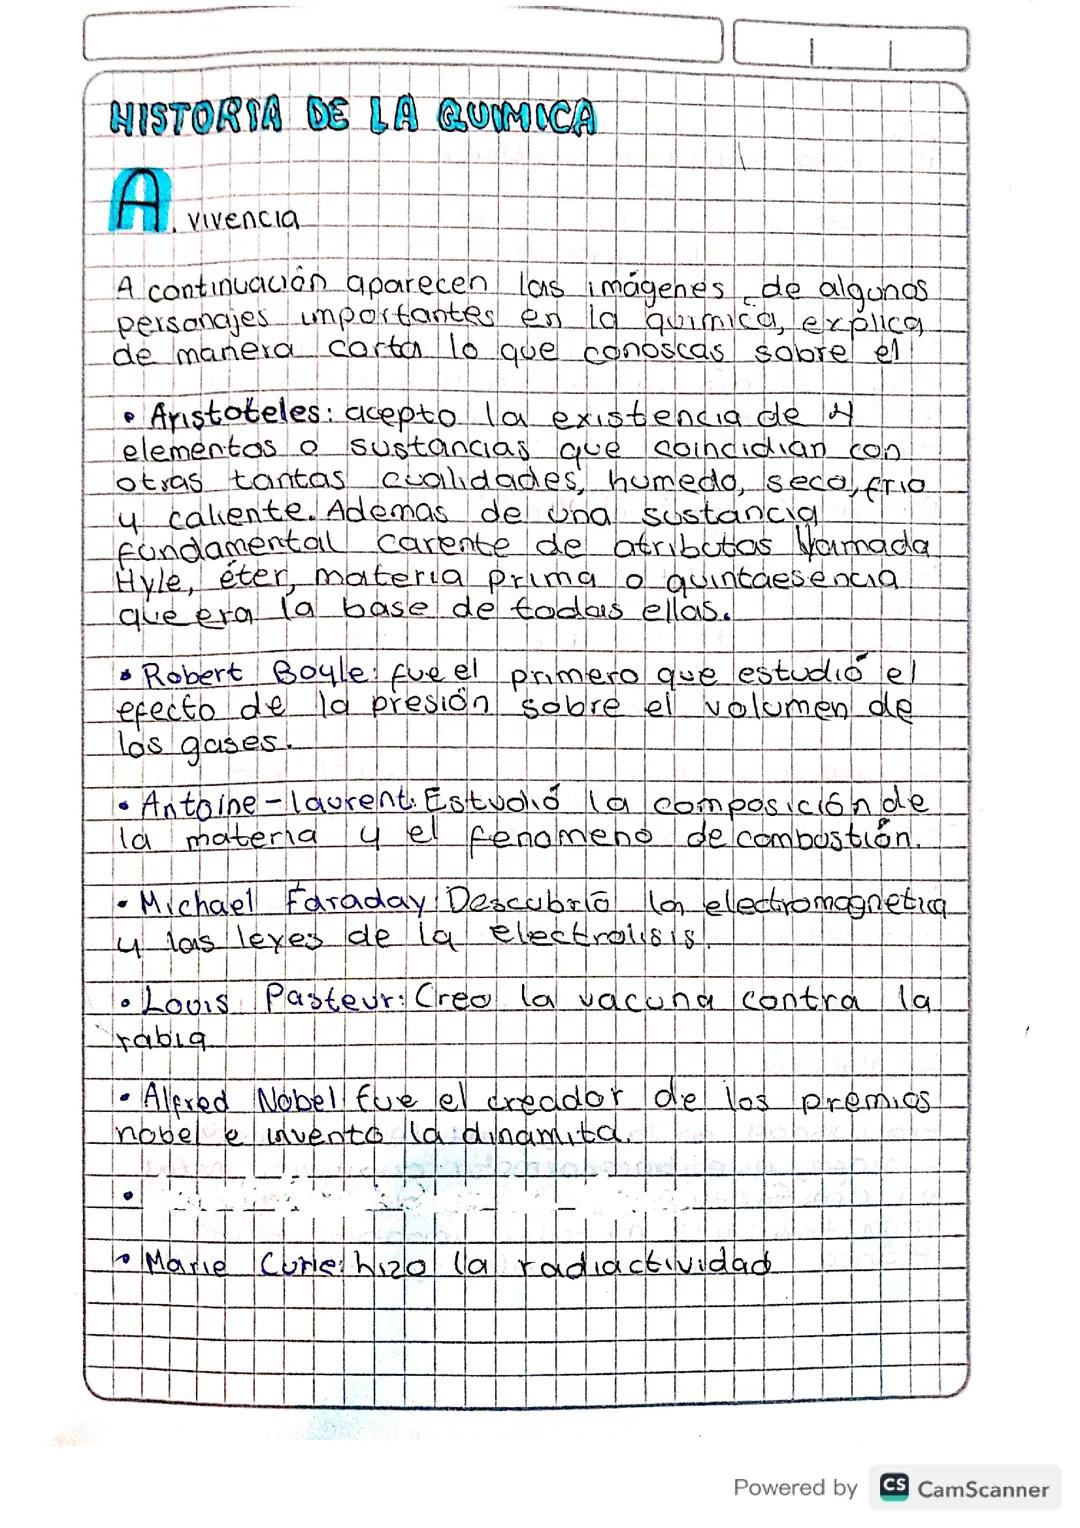 HISTORIA DE LA QUIMICA
A. vivencia
A continuación aparecen las imágenes de algunos
personajes importantes en la quimica, explica
de manera corta lo que conoscas sobre el
• Aristoteles: acepto la existencia de 4
elementos o sustancias que coincidian con
otras tantas cualidades, humedo, seco, frio
y caliente. Ademas de una sustancia
fundamental carente de atributos llamada
Hyle, éter, materia prima o quintaesencia
que era la base de todas ellas.
• Robert Boyle: fue el primero que estudió el
efecto de la presión sobre el volumen de
los gases.
• Antoine-laurent: Estudió la composición de
la materia y el fenomeno de combustión.
• Michael Faraday: Descubrió la electromagnetica
y las leyes de la electrolisis.
• Louis Pasteur: Creo la vacuna contra la
rabia
• Alfred Nobel fue el creador de los premios
nobel e invento la dinamita.
•
• Marie Curie: hizo la radiactividad
Powered by CS CamScanner